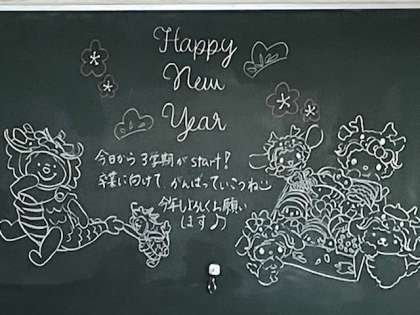 Happy
New
Year
今日から3学期がstart!
卒業に向けてがんばっていこうね
今年もよろしくお願い
します♪